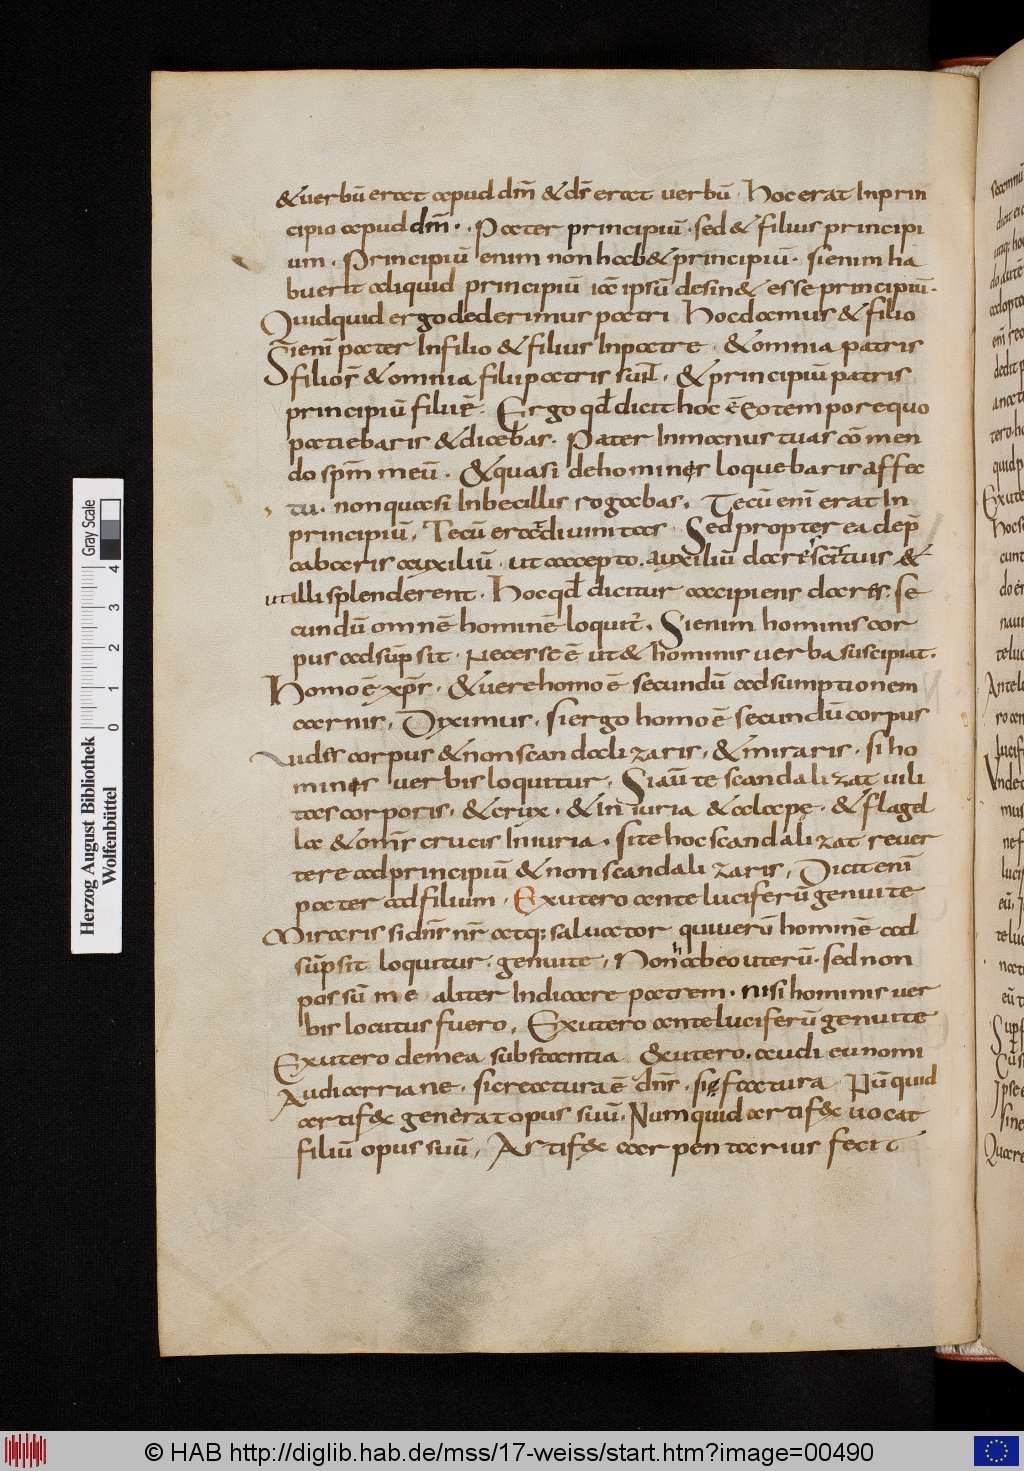 & uerbū erat apud dm̄ & ds̄ erat uerbū · hoc erat In prin
cipio apud dm̄ · Pater principiū · sed & filius principi
um · Principiū enim non hab& principiū · si enim ha
buerit aliquid principiū iā ipsū desin& esse principiū ·
Quidquid ergo dederimus patri hoc damus & filio
Si enī pater In filio & filius In patre · & omnia patris
filio s̄ & omnia filii patris sūt · & principiū patris
principiū filii ē · Ergo qđ dicit hoc ē Eo tempore quo
patiebaris & dicebas · Pater In manus tuas cōmen
do spm̄ meū · & quasi de hominis loquebaris affec
tu · non quasi Inbecillis rogabas · Tecū enī erat In
principiū · Tecū erat diuinitas · Sed propter ea dep̄
cabaris auxiliū · ut accepto auxiliū dares sc̄is tuis &
ut illi splenderent · Hoc qđ dicitur accipiens dares · se
cundū omnē hominē loquit̄ · Si enim hominis cor
pus adsūpsit · Necesse ē ut & hominis uerba suscipiat ·
Homo ē xps̄ · & uere homo ē secundū adsumptionem
carnis · Dyximus · si ergo homo ē secundū corpus
uides corpus & non scandalizaris · & miraris · si ho
minis uerbis loquitur · Si aū te scandalizat uili
tas corporis · & crux · & iniuria & alapę · & flagel
la & omīs crucis Iniuria · si te hoc scandalizat reuer
tere ad principiū & non scandalizaris · Dicit enī
pater ad filium · Ex utero ante luciferū genui te
Miraris si dn̄s nr̄ atq; saluator qui uerū hominē ad
sūpsit loquitur · genui te · Non habeo uterū · sed non
possū me aliter Indicare patrem · nisi hominis uer
bis locutus fuero · Ex utero ante luciferū genui te
Ex utero de mea substantia & utero · audi eunomi
Audi arriane · si creatura ē dn̄s · si factura Nū quid
artifex generat opus suū · Numquid artifex uocat
filiū opus suū · Artifex carpentarius fecit
Herzog August Bibliothek
Wolfenbüttel
0 1 2 3 4
Gray Scale
© HAB http://diglib.hab.de/mss/17-weiss/start.htm?image=00490